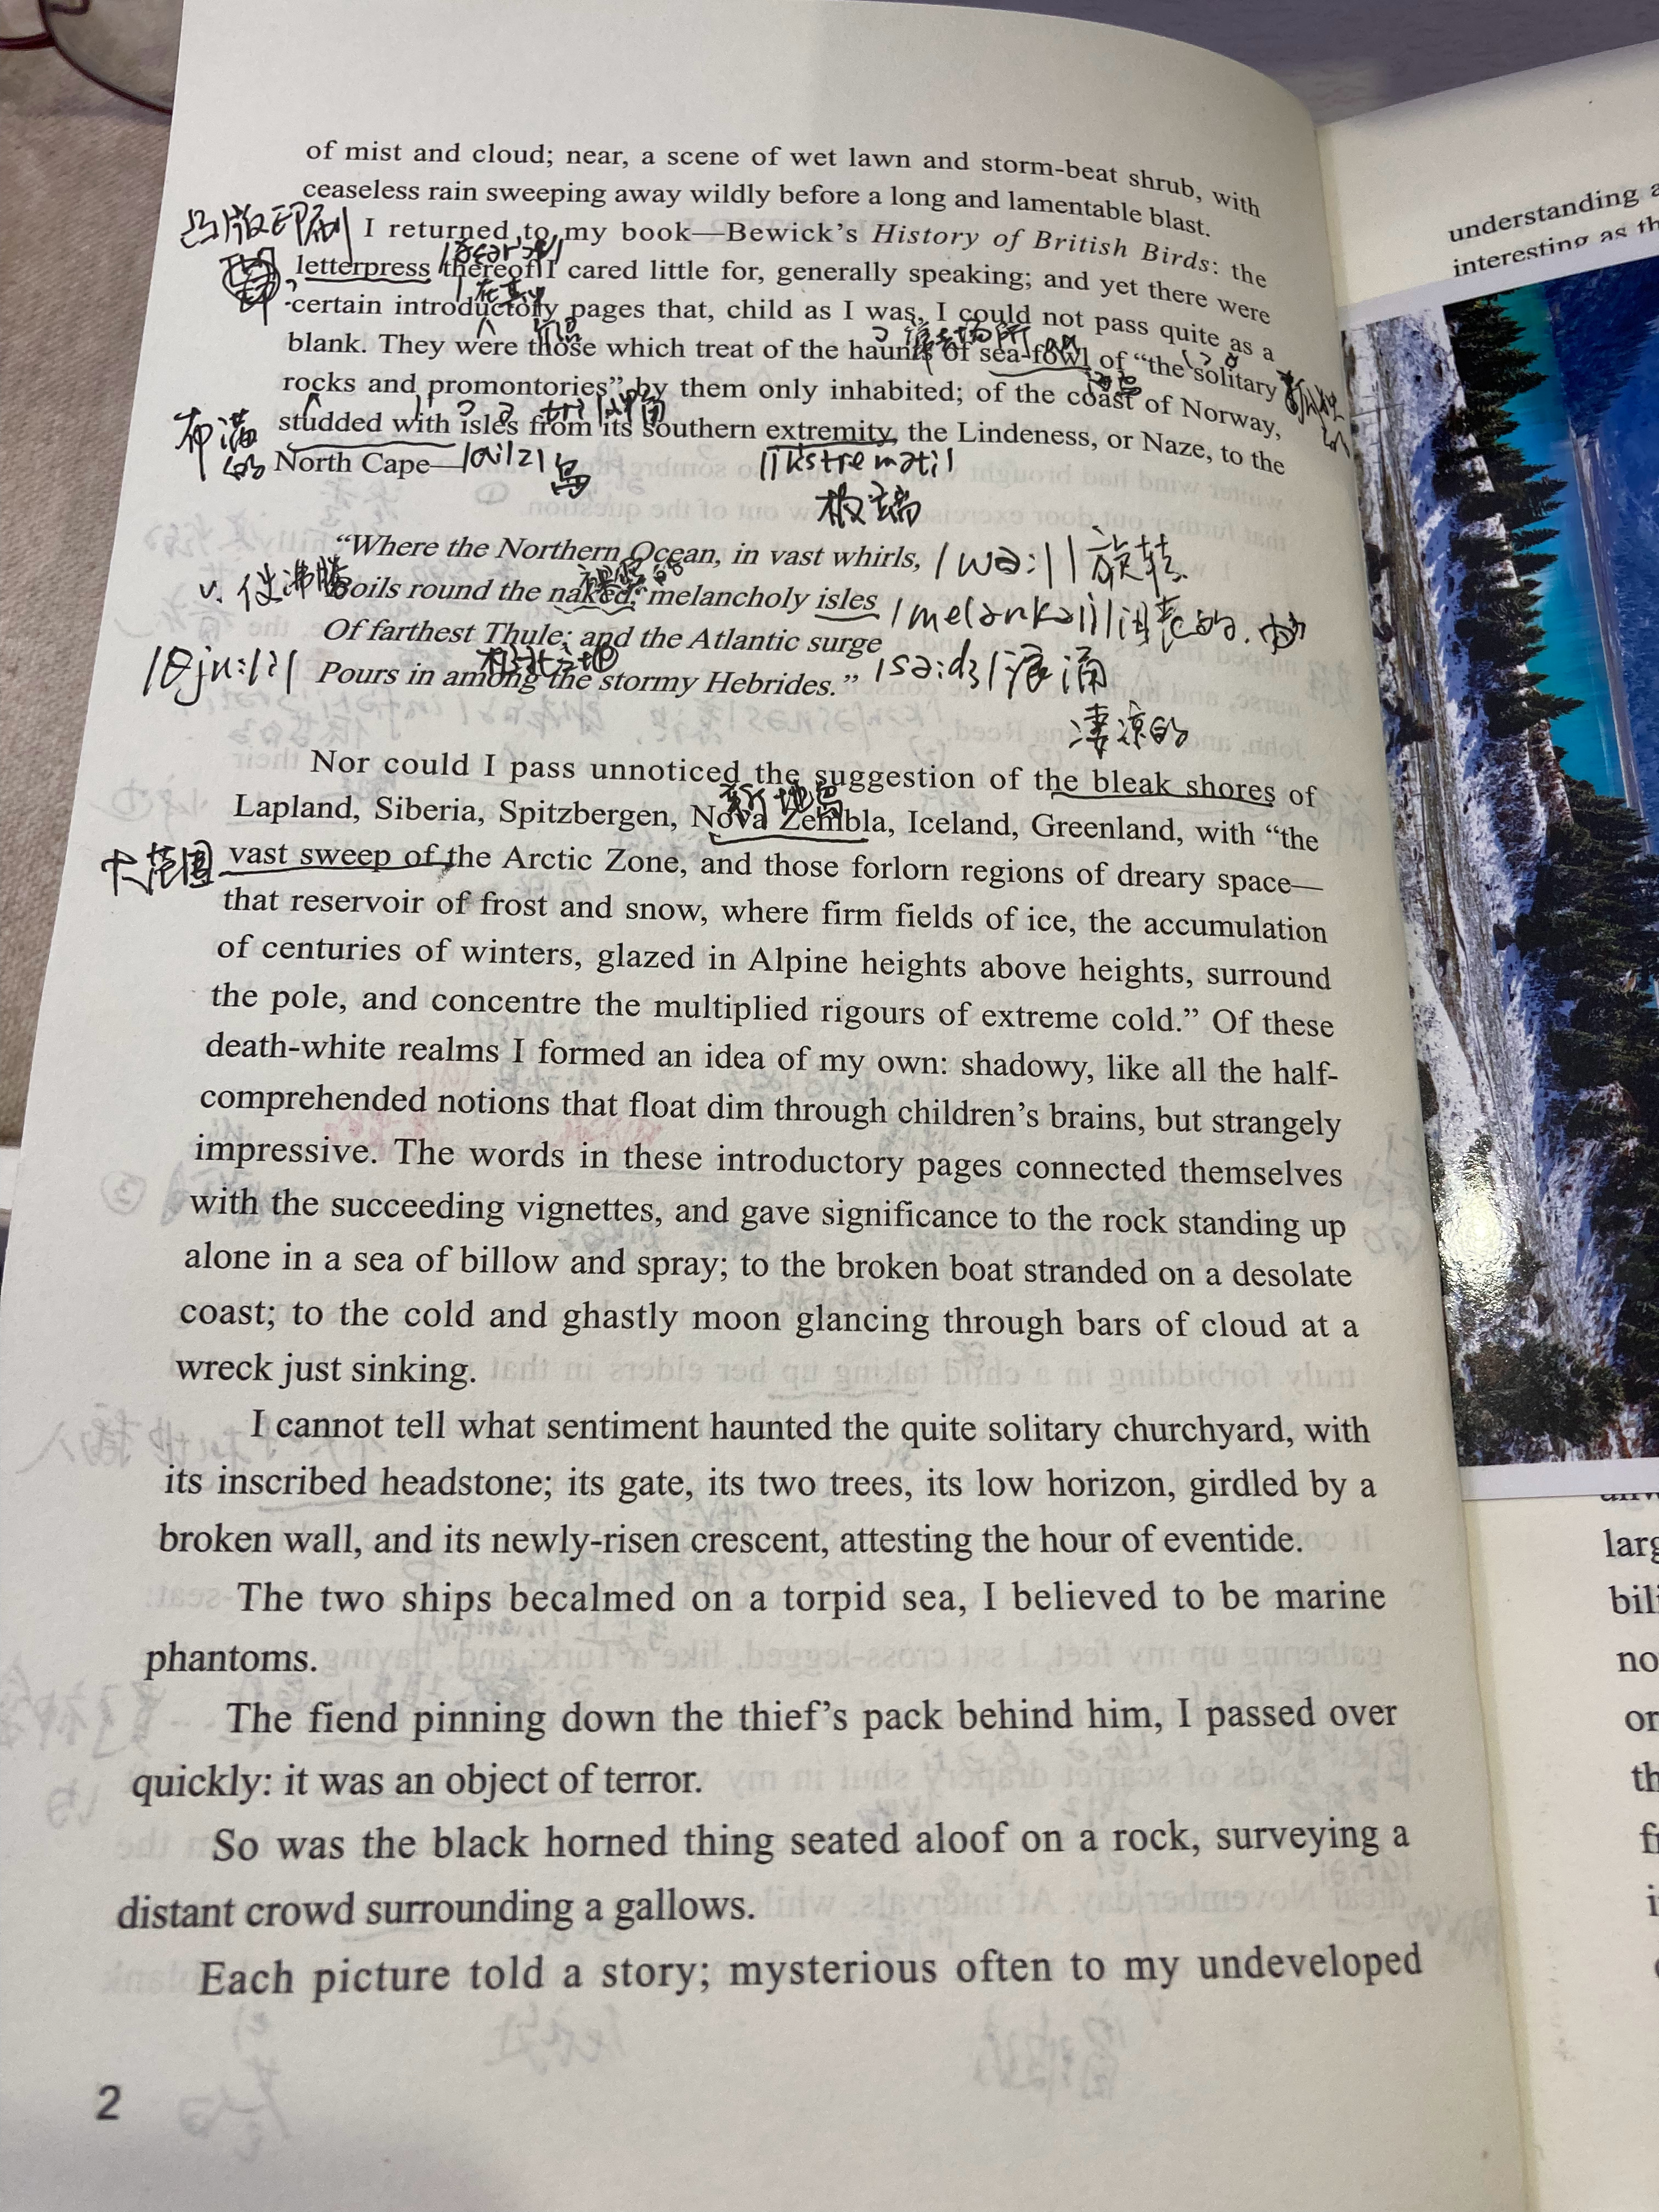 of mist and cloud; near, a scene of wet lawn and storm-beat shrub, with
ceaseless rain sweeping away wildly before a long and lamentable blast.
凸版印刷
I returned to my book—Bewick's History of British Birds: the
letterpress thereof I cared little for, generally speaking; and yet there were
certain introductory pages that, child as I was, I could not pass quite as a
blank. They were those which treat of the haunts of sea-fowl of "the solitary
rocks and promontories" by them only inhabited; of the coast of Norway,
布满的
studded with isles from its southern extremity, the Lindeness, or Naze, to the
North Cape—
/ailz/ 岛
/ikstreməti/
极端
"Where the Northern Ocean, in vast whirls,
/wə:l/ 旋转
v. 使沸腾
Boils round the naked, melancholy isles
Of farthest Thule; and the Atlantic surge
/θju:li/ 极北之地
Pours in among the stormy Hebrides."
/sə:dʒ/ 浪涌
凄凉的
Nor could I pass unnoticed the suggestion of the bleak shores of
新地岛
Lapland, Siberia, Spitzbergen, Nova Zembla, Iceland, Greenland, with "the
大范围
vast sweep of the Arctic Zone, and those forlorn regions of dreary space—
that reservoir of frost and snow, where firm fields of ice, the accumulation
of centuries of winters, glazed in Alpine heights above heights, surround
the pole, and concentre the multiplied rigours of extreme cold." Of these
death-white realms I formed an idea of my own: shadowy, like all the half-
comprehended notions that float dim through children's brains, but strangely
impressive. The words in these introductory pages connected themselves
with the succeeding vignettes, and gave significance to the rock standing up
alone in a sea of billow and spray; to the broken boat stranded on a desolate
coast; to the cold and ghastly moon glancing through bars of cloud at a
wreck just sinking.
I cannot tell what sentiment haunted the quite solitary churchyard, with
its inscribed headstone; its gate, its two trees, its low horizon, girdled by a
broken wall, and its newly-risen crescent, attesting the hour of eventide.
The two ships becalmed on a torpid sea, I believed to be marine
phantoms.
The fiend pinning down the thief's pack behind him, I passed over
quickly: it was an object of terror.
So was the black horned thing seated aloof on a rock, surveying a
distant crowd surrounding a gallows.
Each picture told a story; mysterious often to my undeveloped
2
understanding
interesting as